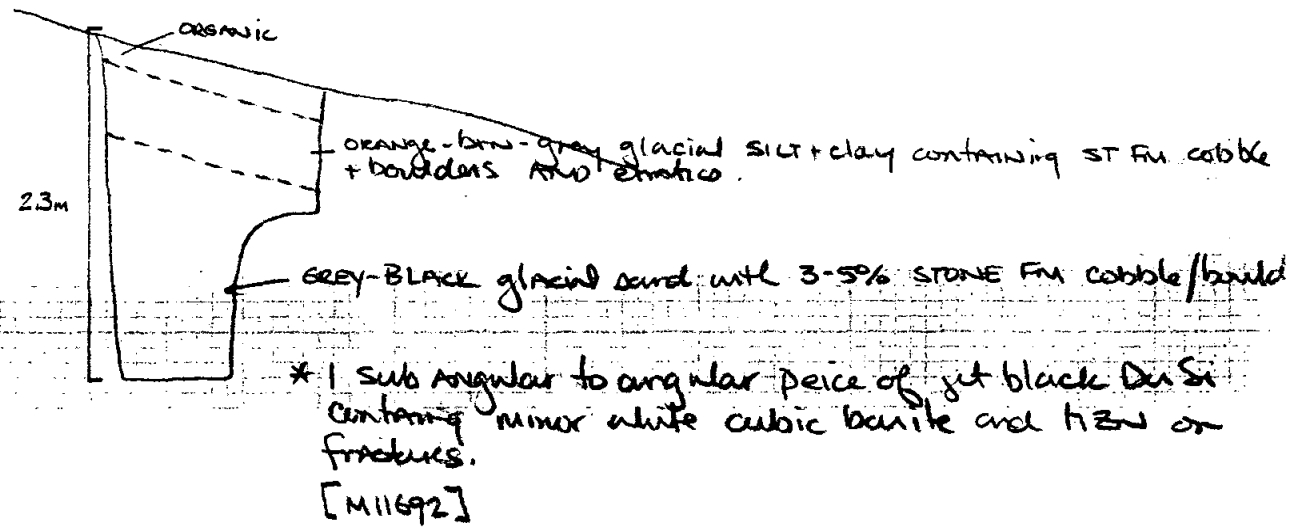 ORGANIC
ORANGE-brn-gray glacial SILT + clay containing ST FM cobble
+ boulders AND erratics.
2.3m
GREY-BLACK glacial sand with 3-5% STONE FM cobble/bould
* 1 sub Angular to angular peice of jet black Du Si
containing minor white cubic barite and HZN on
fractures.
[M11692]